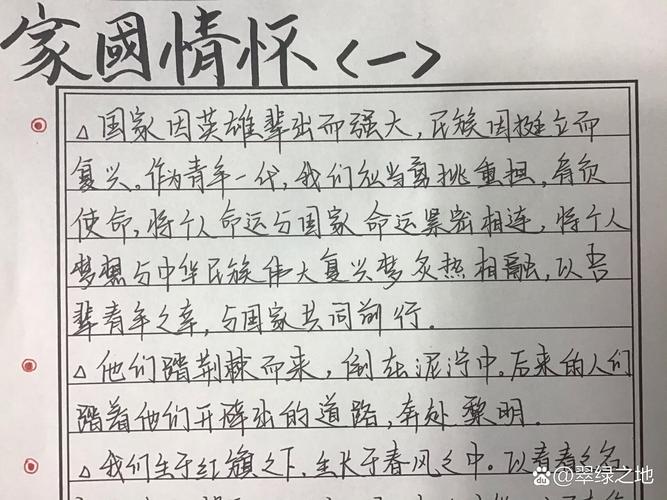 家國情怀〈一〉
△国家因英雄辈出而强大，民族因挺立而
复兴。作为青年一代，我们应当勇挑重担，肩负
使命，将个人命运与国家命运紧密相连，将个人
梦想与中华民族伟大复兴梦炙热相融，以吾
辈青年之幸，与国家共同前行.
△他们踏荆棘而来，倒在泥泞中。后来的人们
踏着他们开辟出的道路，奔赴黎明.
△我们生于红旗之下，生长于春风之中。以青春之名
@翠绿之地